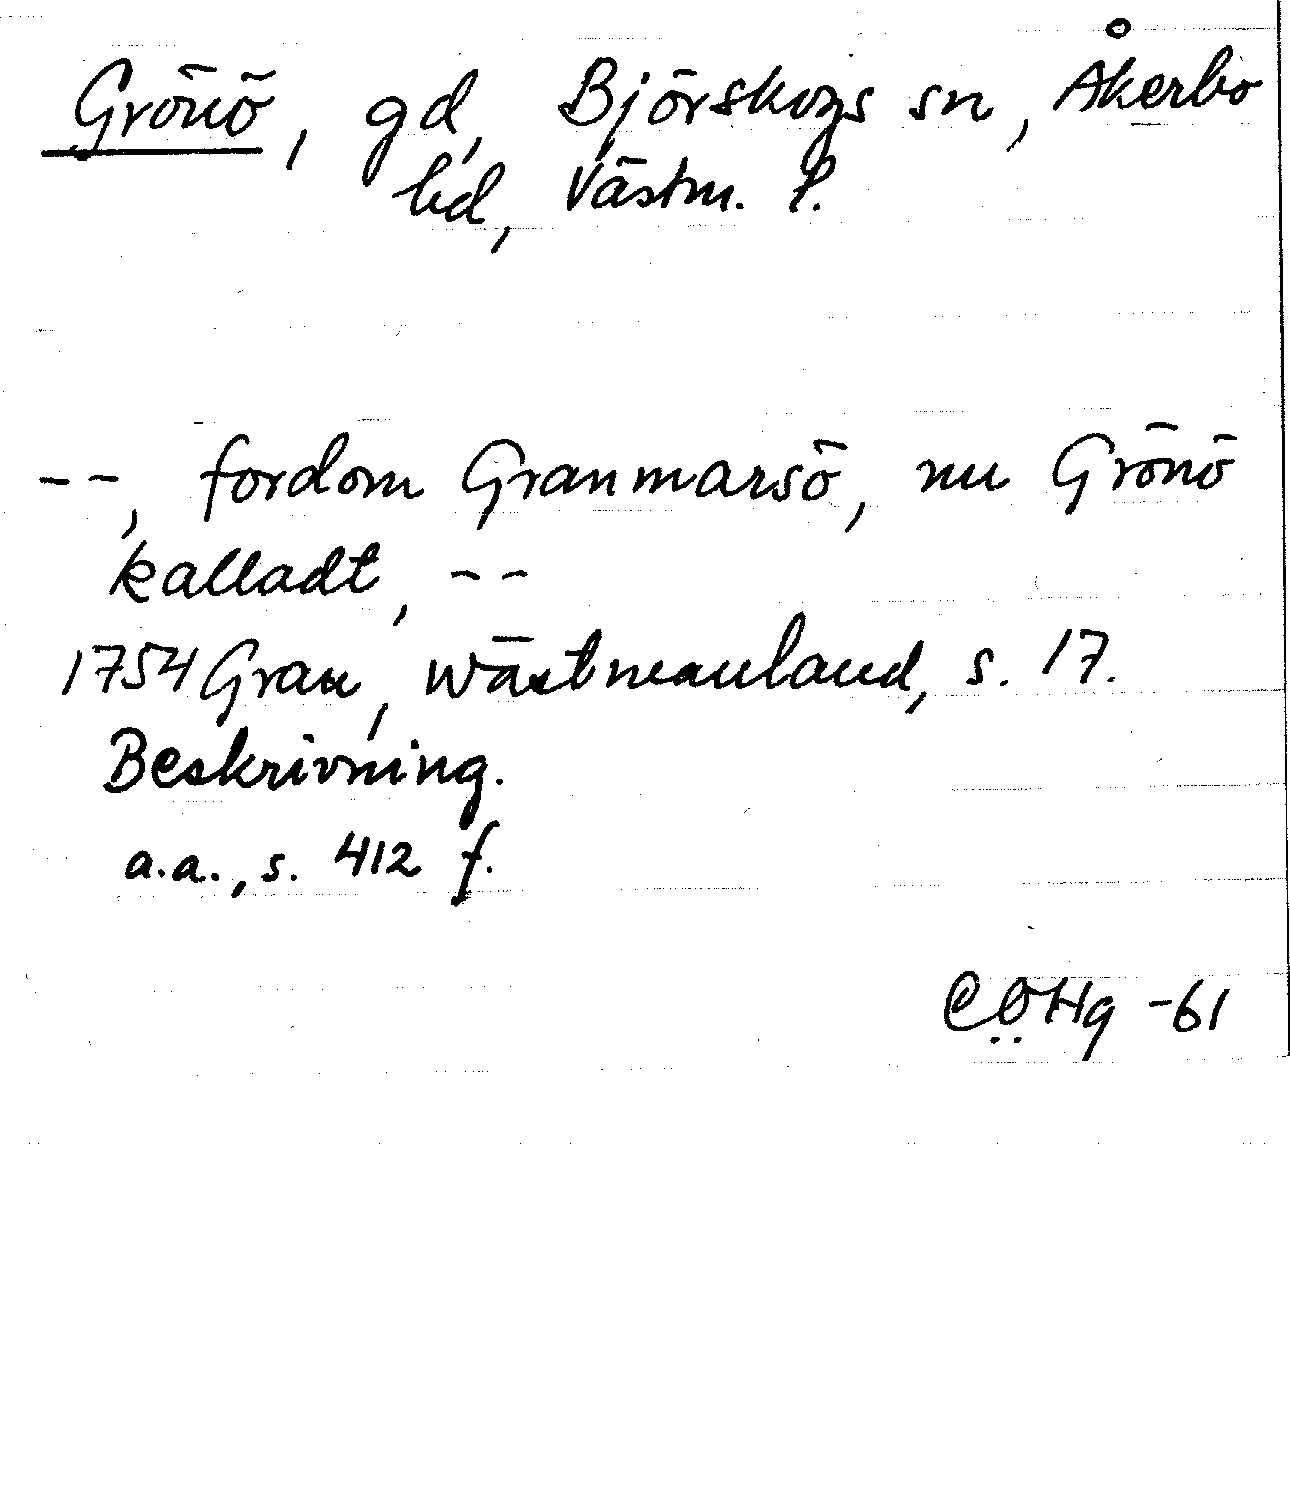 Grönö, gd, Björskogs sn, Åkerbo
hd, Västm. l.
--, fordom Granmarsö, nu Grönö
kalladt, --
1754 Grau, Wästmanland, s. 17.
Beskrivning.
a.a., s. 412 f.
CÖHg -61